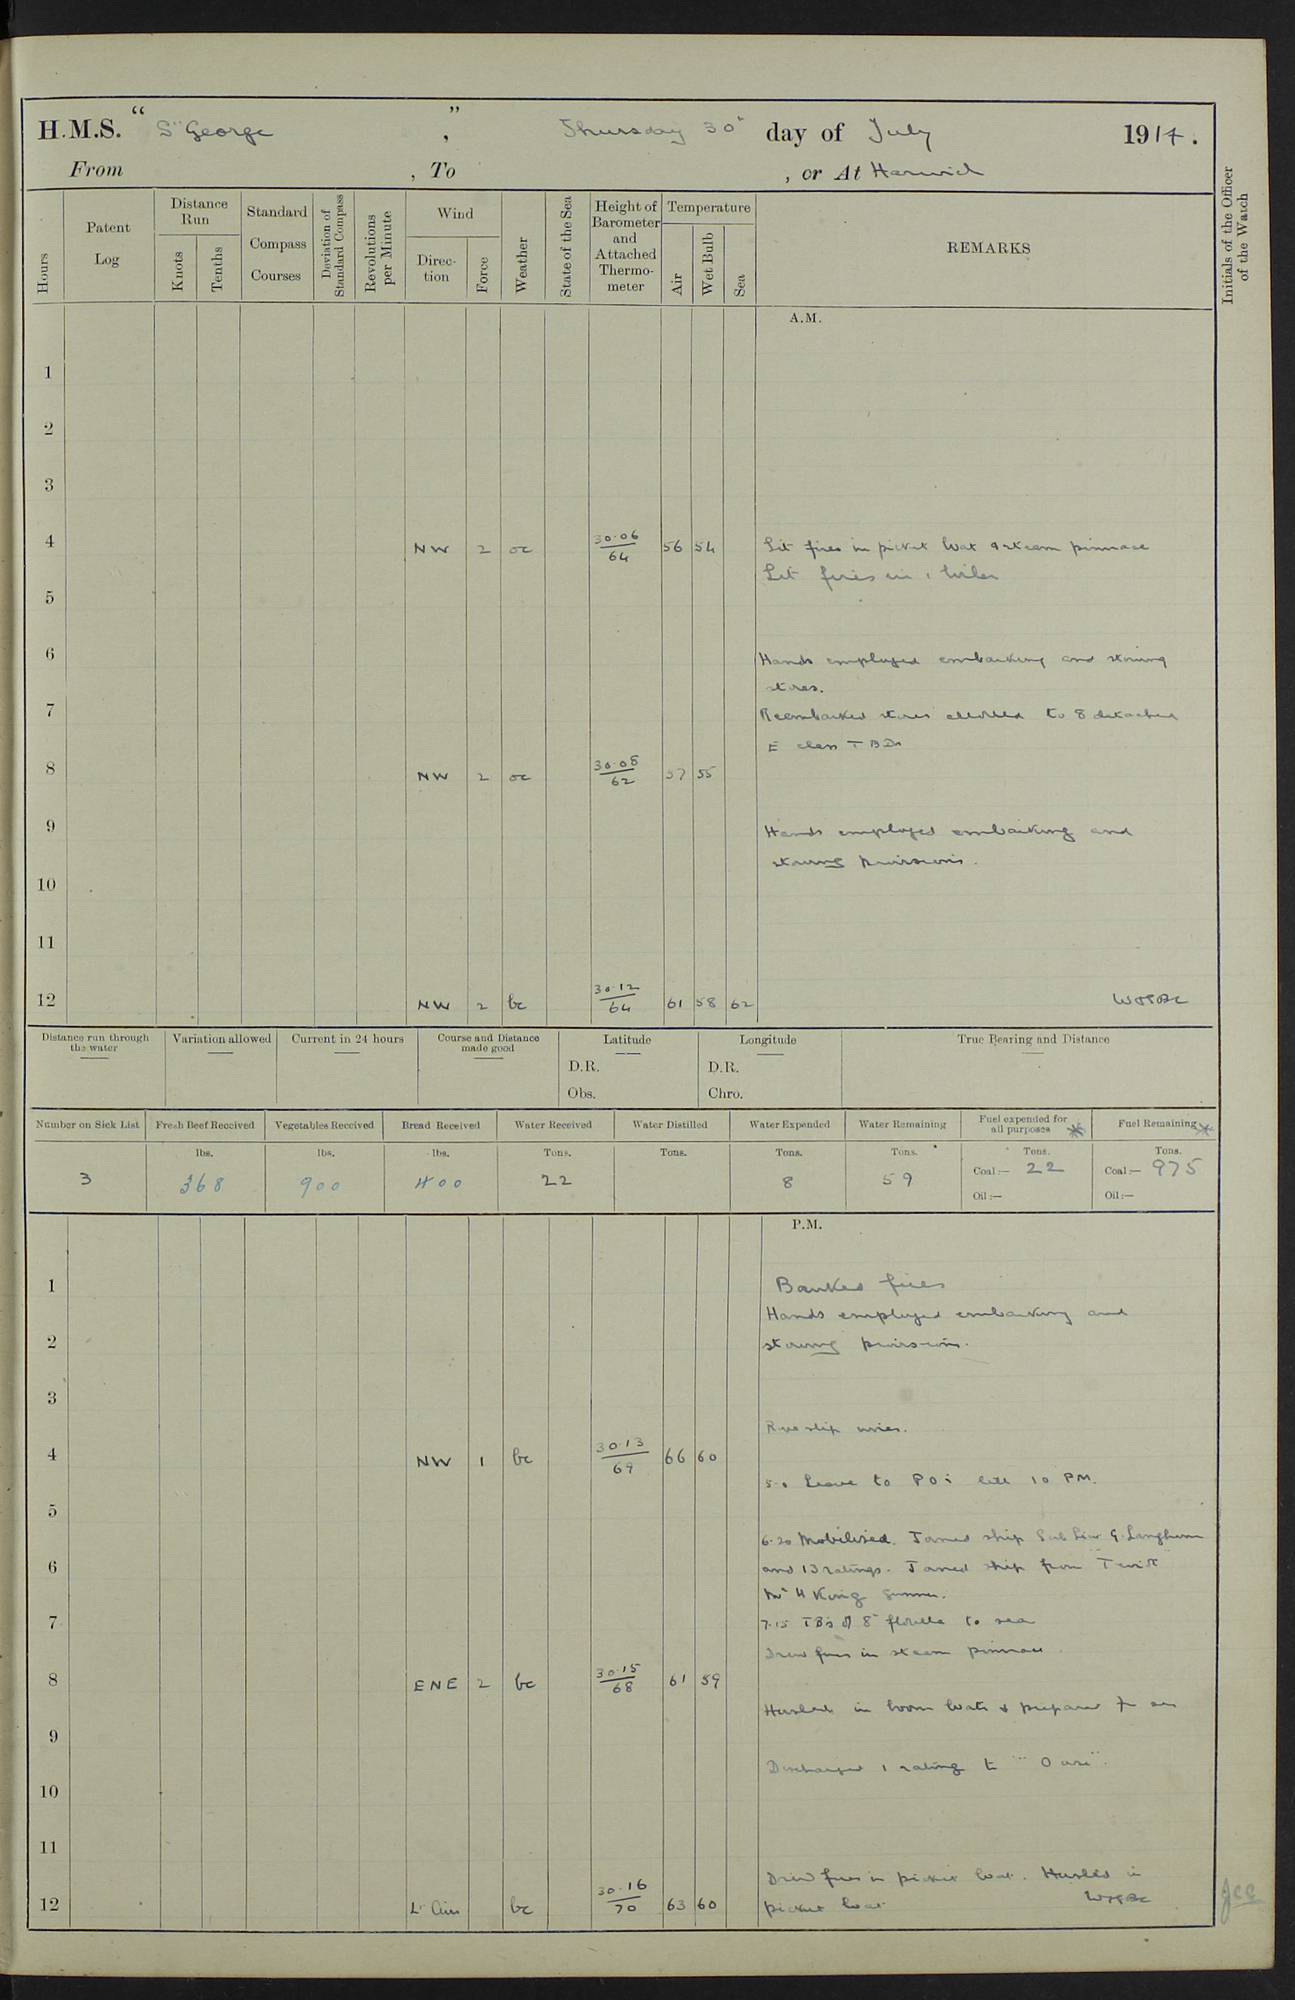 H.M.S. " St George " , Thursday 30th day of July 1914.
From , To , or At Harwich
Hours Patent Log Distance Run Knots Tenths Standard Compass Courses Deviation of Standard Compass Revolutions per Minute Wind Direction Force Weather State of the Sea Height of Barometer and Attached Thermometer Temperature Air Wet Bulb Sea REMARKS Initials of the Officer of the Watch
A.M.
1
2
3
4 NW 2 oc 30.06/64 56 54 Lit fires in picket boat & steam pinnace
Lit fires in 1 boiler
5
6 Hands employed embarking and storing
stores.
7 Reembarked stores allotted to 8 detached
E class TBDs
8 NW 2 oc 30.08/62 57 55
9 Hands employed embarking and
storing provisions.
10
11
12 NW 2 bc 30.12/64 61 58 62
Distance run through the water Variation allowed Current in 24 hours Course and Distance made good Latitude Longitude True Bearing and Distance
D.R. D.R.
Obs. Chro.
Number on Sick List Fresh Beef Received Vegetables Received Bread Received Water Received Water Distilled Water Expended Water Remaining Fuel expended for all purposes Fuel Remaining
lbs. lbs. lbs. Tons. Tons. Tons. Tons. Tons. Tons.
3 368 900 400 22 8 59 Coal:— 22 Coal:— 975
Oil:— Oil:—
P.M.
1 Banked fires
Hands employed embarking and
2 storing provisions.
3
4 NW 1 bc 30.13/69 66 60
5.0 Leave to POs till 10 PM.
5
6.20 Mobilised. Joined ship Sub Lieut G. Langham
6 and 13 ratings. Joined ship from
Mr H King Gunner.
7 7.15 TBs of 8th flotilla to sea
Drew fires in steam pinnace
8 ENE 2 bc 30.15/68 61 59
Hoisted in boom boats & prepared for sea
9
Discharged 1 rating to
10
11
Drew fires in picket boat. Hoisted in
12 Lt Airs bc 30.16/70 63 60 picket boat